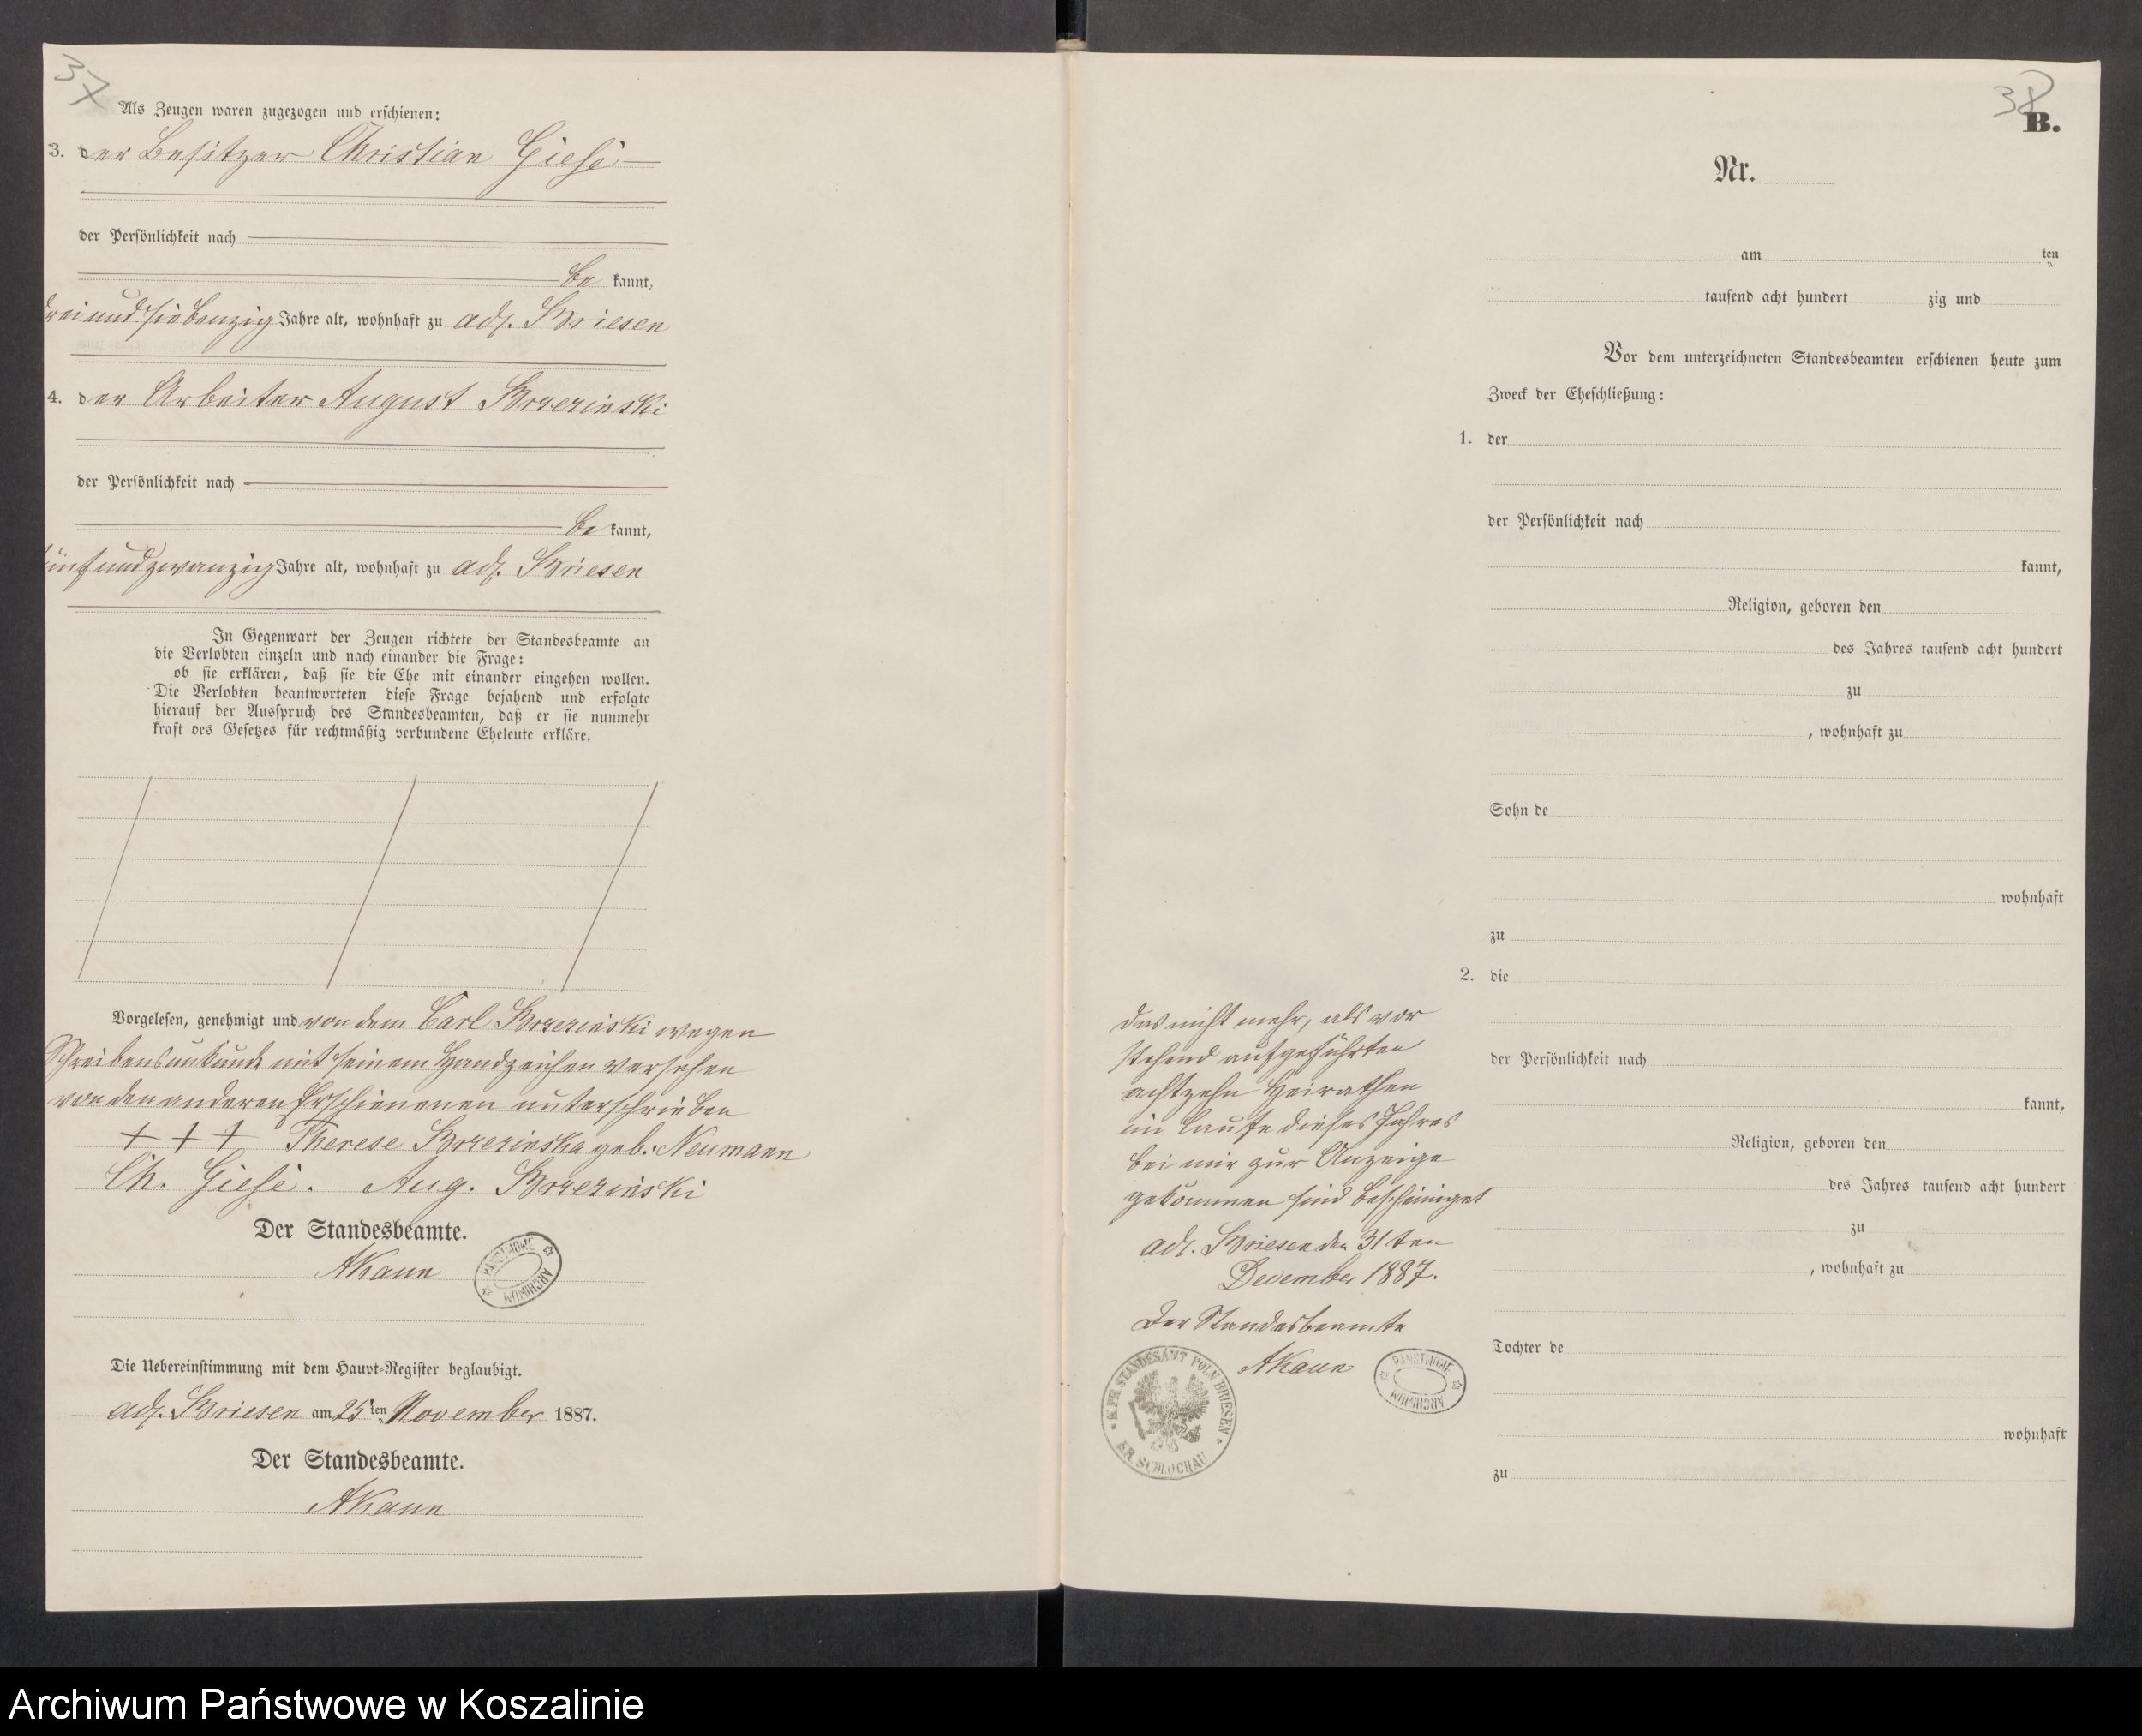 37
Als Zeugen waren zugezogen und erschienen:
3. der Besitzer Christian Giese
der Persönlichkeit nach
be kannt,
drei und siebenzig Jahre alt, wohnhaft zu adl. Briesen
4. der Arbeiter August Brzezinski
der Persönlichkeit nach
be kannt,
fünf und zwanzig Jahre alt, wohnhaft zu adl. Briesen
In Gegenwart der Zeugen richtete der Standesbeamte an
die Verlobten einzeln und nach einander die Frage:
ob sie erklären, daß sie die Ehe mit einander eingehen wollen.
Die Verlobten beantworteten diese Frage bejahend und erfolgte
hierauf der Ausspruch des Standesbeamten, daß er sie nunmehr
kraft des Gesetzes für rechtmäßig verbundene Eheleute erkläre.
Vorgelesen, genehmigt und von dem Carl Brzezinski wegen
Schreibensunkunde mit seinem Handzeichen versehen
von den anderen Erschienenen unterschrieben
+ + + Therese Brzezinska geb: Neumann
Ch. Giese. Aug. Brzezinski
Der Standesbeamte.
AKaun
PAŃSTWOWE ARCHIWUM
Die Uebereinstimmung mit dem Haupt-Register beglaubigt.
adl. Briesen am 25ten November 1887.
Der Standesbeamte.
AKaun
38
B.
Nr.
am ten
tausend acht hundert zig und
Vor dem unterzeichneten Standesbeamten erschienen heute zum
Zweck der Eheschließung:
1. der
der Persönlichkeit nach
kannt,
Religion, geboren den
des Jahres tausend acht hundert
zu
, wohnhaft zu
Sohn de
wohnhaft
zu
2. die
der Persönlichkeit nach
kannt,
Religion, geboren den
des Jahres tausend acht hundert
zu
, wohnhaft zu
Tochter de
wohnhaft
zu
Das nicht mehr, als vor
stehend aufgeführten
achtzehn Heirathen
im Laufe dieses Jahres
bei mir zur Anzeige
gekommen sind bescheiniget
adl. Briesen den 31 ten
December 1887.
Der Standesbeamte
AKaun
K. PR. STANDESAMT POLN BRIESEN
KR. SCHLOCHAU
PAŃSTWOWE ARCHIWUM
Archiwum Państwowe w Koszalinie